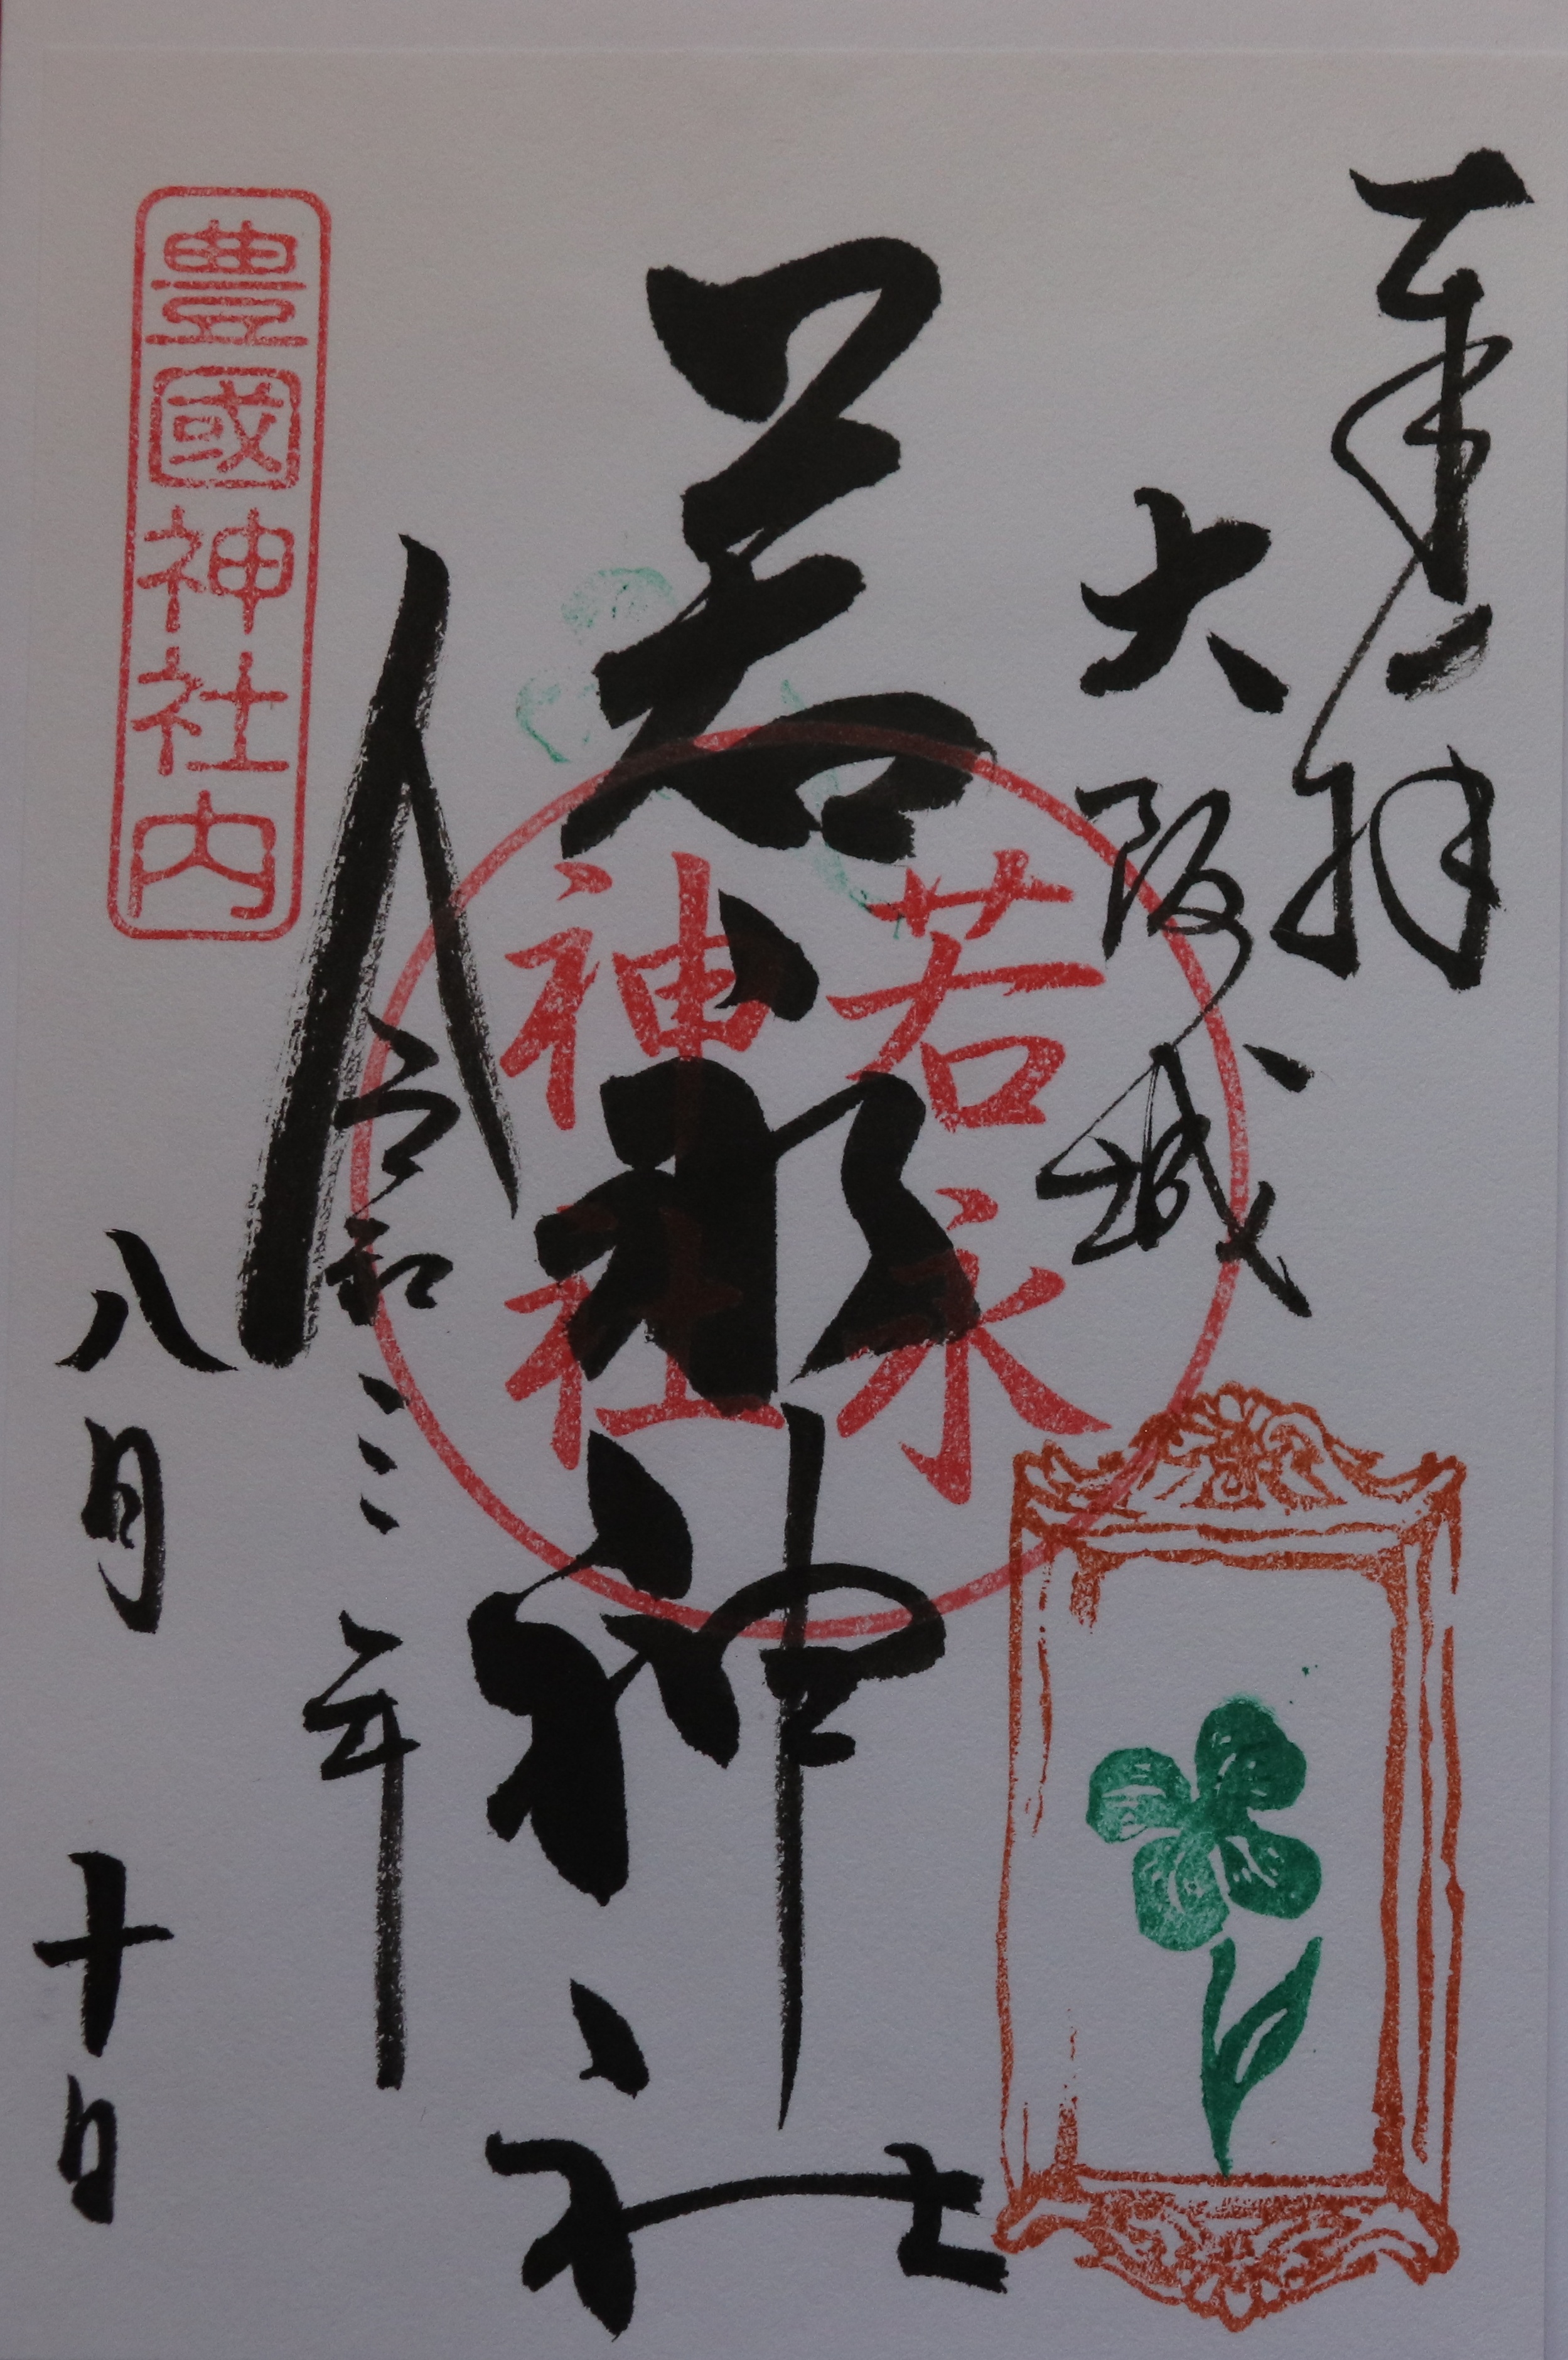 奉拝
大阪城
若永神社
若永神社
令和三年
八月十日
豊國神社内